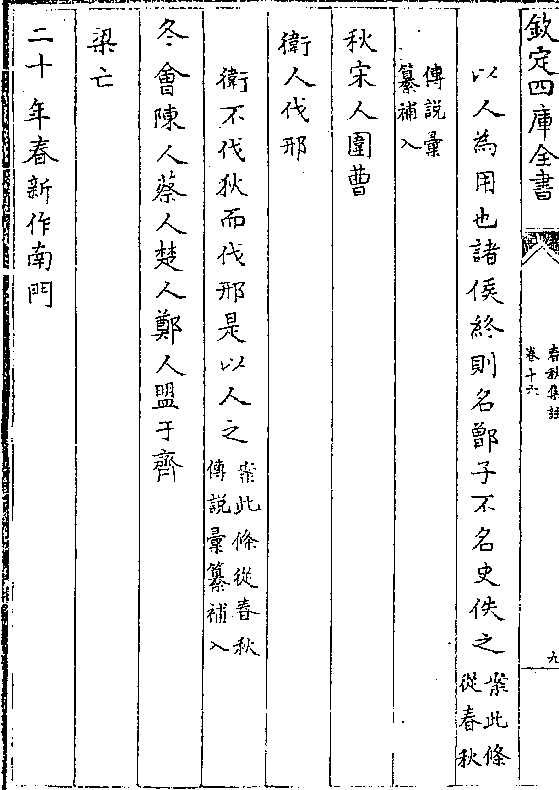 欽定四庫全書
春秋集註
卷十六
九
以人為用也諸侯終則名鄫子不名史佚之
案此條
從春秋
傳說彙
纂補入
秋宋人圍曹
衛人伐邢
衛不伐狄而伐邢是以人之
案此條從春秋
傳說彙纂補入
冬會陳人蔡人楚人鄭人盟于齊
梁亡
二十年春新作南門